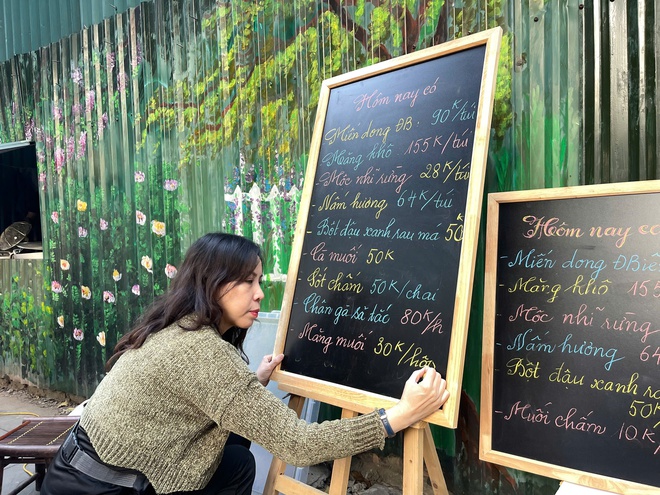 Hôm nay có
- Miến dong ĐB: 90K/túi
- Măng khô 155K/túi
- Mộc nhĩ rừng 28K/túi
- Nấm hương 64K/túi
- Bột đậu xanh rau má 50K
- Cà muối 50K
Sốt chấm 50K/chai
Chân gà sả tắc 80K/h
Măng muối 30K/hộp
Hôm nay có
- Miến dong ĐBiê
- Măng khô 155
- Mộc nhĩ rừng
- Nấm hương 64
- Bột đậu xanh rau
50K
- Muối chấm 10K